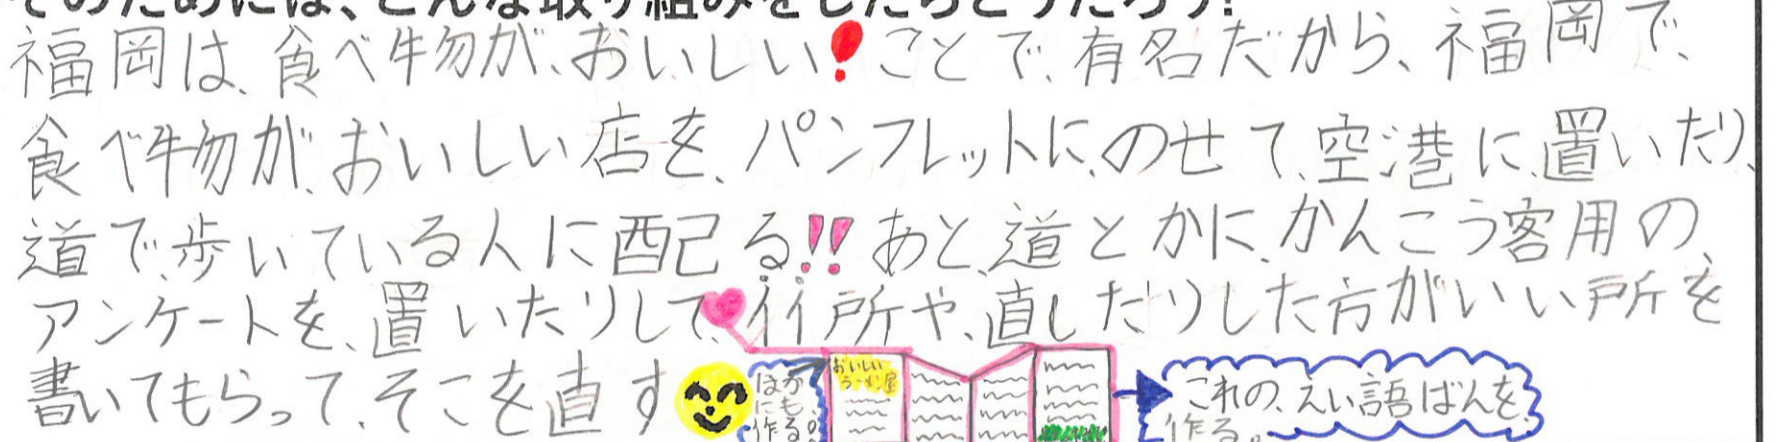 そのためには、どんな取り組みをしたらどうだろう?
福岡は、食べ物が、おいしい！ことで、有名だから、福岡で、
食べ物が、おいしい店を、パンフレットに、のせて、空港に、置いたり、
道で、歩いている人に配る!!あと、道とかに、かんこう客用の、
アンケートを、置いたりして、イイ所や、直したりした方がいい所を
書いてもらって、そこを直す
ほかにも、作る。
おいしいラーメン屋
これの、えい語ばんを、
作る。